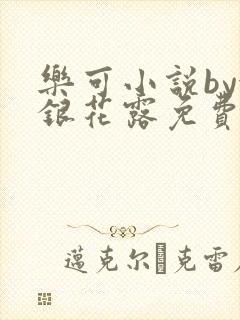 樂可小説by
銀花露免費
邁克尔·克雷